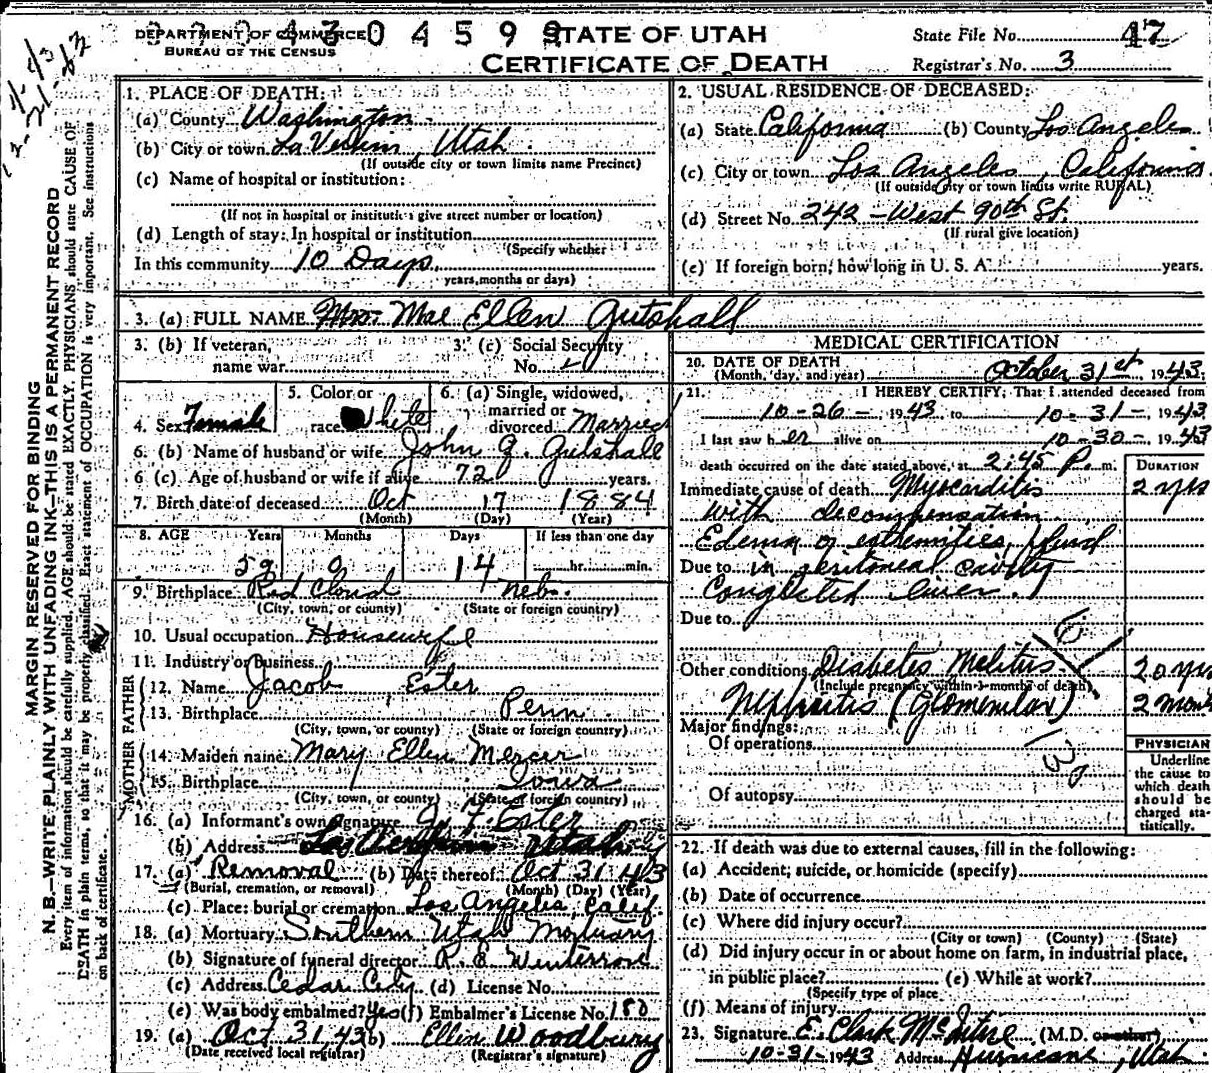 DEPARTMENT OF COMMERCE
BUREAU OF THE CENSUS
0 4 5 9 9
STATE OF UTAH
CERTIFICATE OF DEATH
State File No. 47
Registrar's No. 3
MARGIN RESERVED FOR BINDING
N. B.—WRITE PLAINLY WITH UNFADING INK—THIS IS A PERMANENT RECORD
Every item of information should be carefully supplied. AGE should be stated EXACTLY. PHYSICIANS should state CAUSE OF
DEATH in plain terms, so that it may be properly classified. Exact statement of OCCUPATION is very important. See instructions
on back of certificate.
1. PLACE OF DEATH:
(a) County Washington
(b) City or town La Verkin, Utah
(If outside city or town limits name Precinct)
(c) Name of hospital or institution:
(If not in hospital or institution give street number or location)
(d) Length of stay: In hospital or institution
(Specify whether
In this community 10 Days
years, months or days)
2. USUAL RESIDENCE OF DECEASED:
(a) State California (b) County Los Angeles
(c) City or town Los Angeles, California
(If outside city or town limits write RURAL)
(d) Street No. 242 - West 90th St.
(If rural give location)
(e) If foreign born, how long in U. S. A. years.
3. (a) FULL NAME Mrs. Mae Ellen Gutshall
3. (b) If veteran, name war
3. (c) Social Security No.
4. Sex Female
5. Color or race White
6. (a) Single, widowed, married or divorced Married
6. (b) Name of husband or wife John G. Gutshall
6 (c). Age of husband or wife if alive 72 years.
7. Birth date of deceased Oct 17 1884
(Month) (Day) (Year)
8. AGE Years Months Days If less than one day
59 0 14 hr. min.
9. Birthplace Red Cloud Neb.
(City, town, or county) (State or foreign country)
10. Usual occupation Housewife
11. Industry or Business
FATHER
12. Name Jacob Ester
13. Birthplace Penn
(City, town, or county) (State or foreign country)
MOTHER
14. Maiden name Mary Ellen Mercer
15. Birthplace Iowa
(City, town, or county) (State or foreign country)
16. (a) Informant's own signature F. Ester
(b) Address Utah
17. (a) Removal (b) Date thereof Oct 31 43
(Burial, cremation, or removal) (Month) (Day) (Year)
(c) Place: burial or cremation Los Angeles, Calif.
18. (a) Mortuary Southern Utah Mortuary
(b) Signature of funeral director
(c) Address Cedar City (d) License No.
(e) Was body embalmed? Yes (f) Embalmer's License No. 180
19. (a) Oct 31, 43 (b) Ellen Woodbury
(Date received local registrar) (Registrar's signature)
MEDICAL CERTIFICATION
20. DATE OF DEATH
(Month, day, and year) October 31st, 1943
21. I HEREBY CERTIFY; That I attended deceased from
10-26-, 1943, to 10-31-, 1943
I last saw her alive on 10-30-, 1943
death occurred on the date stated above, at 2:45 P. m.
DURATION
Immediate cause of death Myocarditis 2 yrs
with decompensation
Edema of extremities, fluid
Due to in peritoneal cavity
Congested liver.
Due to
Other conditions Diabetes Melitus 20 yrs
(Include pregnancy within 3 months of death)
Nephritis (Glomerular) 2 months
Major findings:
Of operations
Of autopsy
PHYSICIAN
Underline
the cause to
which death
should be
charged sta-
tistically.
22. If death was due to external causes, fill in the following:
(a) Accident, suicide, or homicide (specify)
(b) Date of occurrence
(c) Where did injury occur?
(City or town) (County) (State)
(d) Did injury occur in or about home on farm, in industrial place,
in public place? (e) While at work?
(Specify type of place
(f) Means of injury
23. Signature E. Clark McIntire (M.D. or other)
10-31-1943 Address Hurricane, Utah